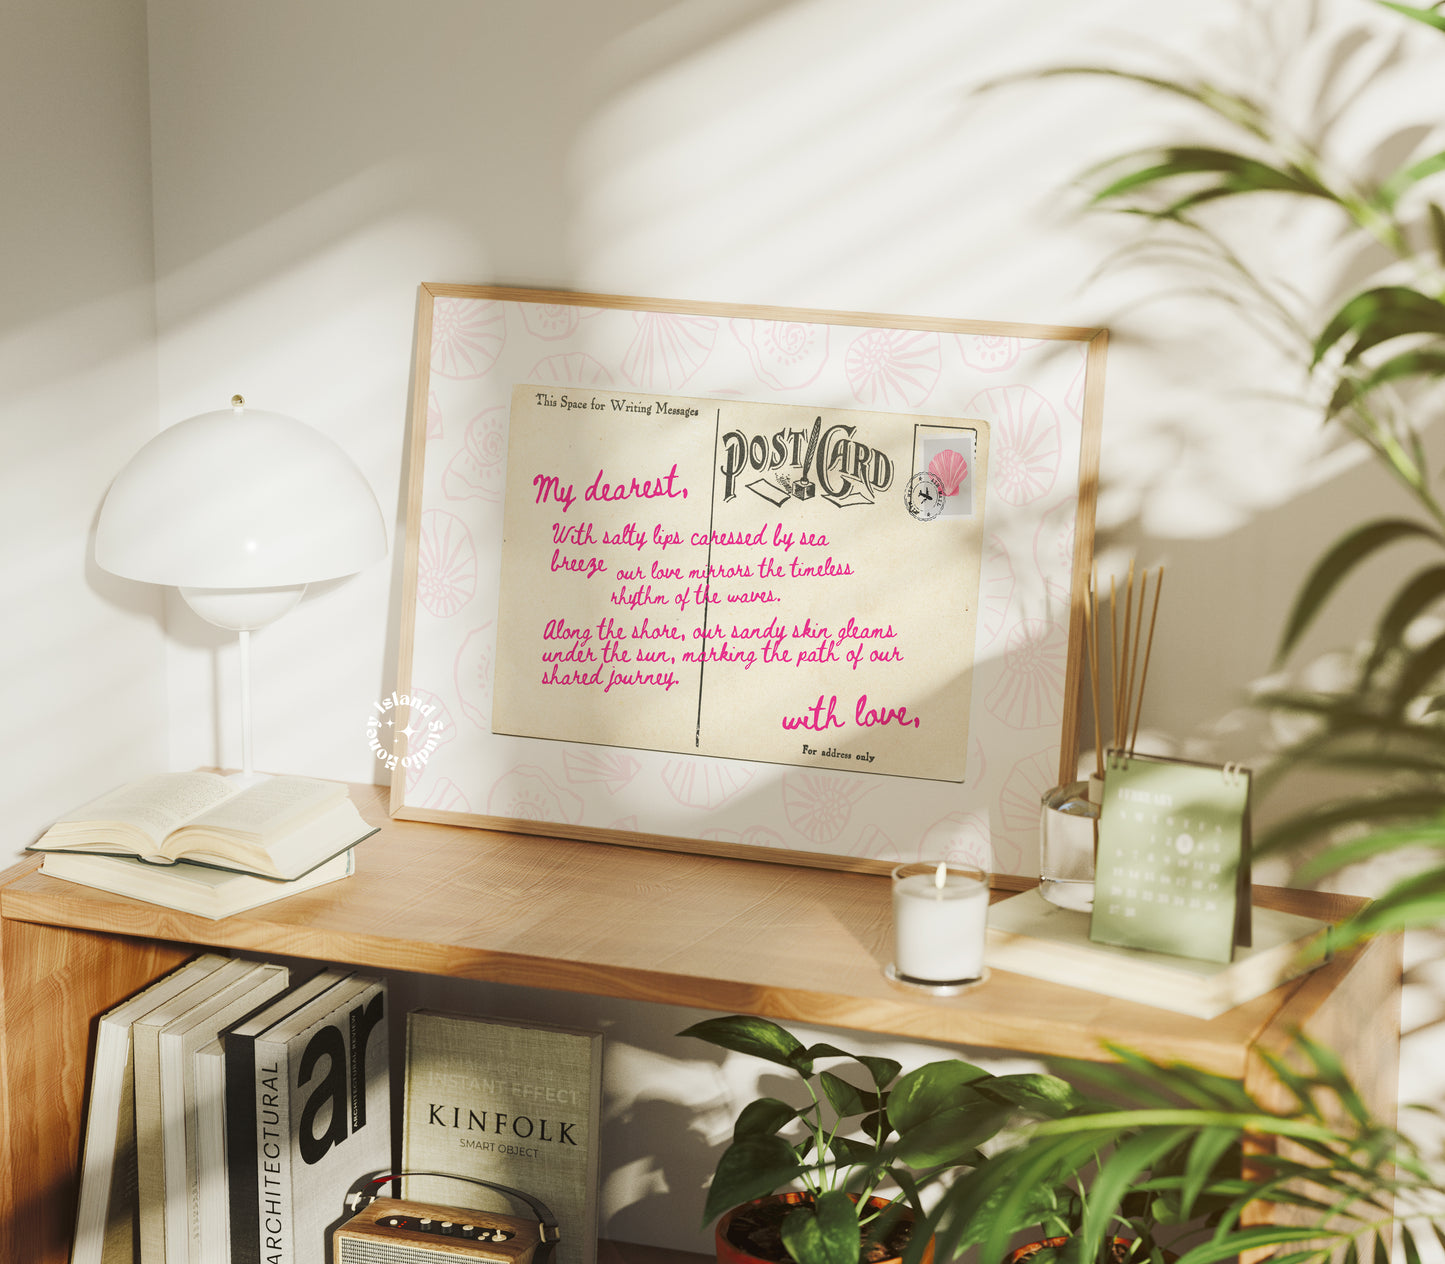 This Space for Writing Messages
POST CARD
My dearest,
With salty lips caressed by sea
breeze our love mirrors the timeless
rhythm of the waves.
Along the shore, our sandy skin gleams
under the sun, marking the path of our
shared journey.
with love,
For address only
Honey Island Studio
FEBRUARY
ARCHITECTURAL
ar
ARCHITECTURAL REVIEW
INSTANT EFFECT
KINFOLK
SMART OBJECT